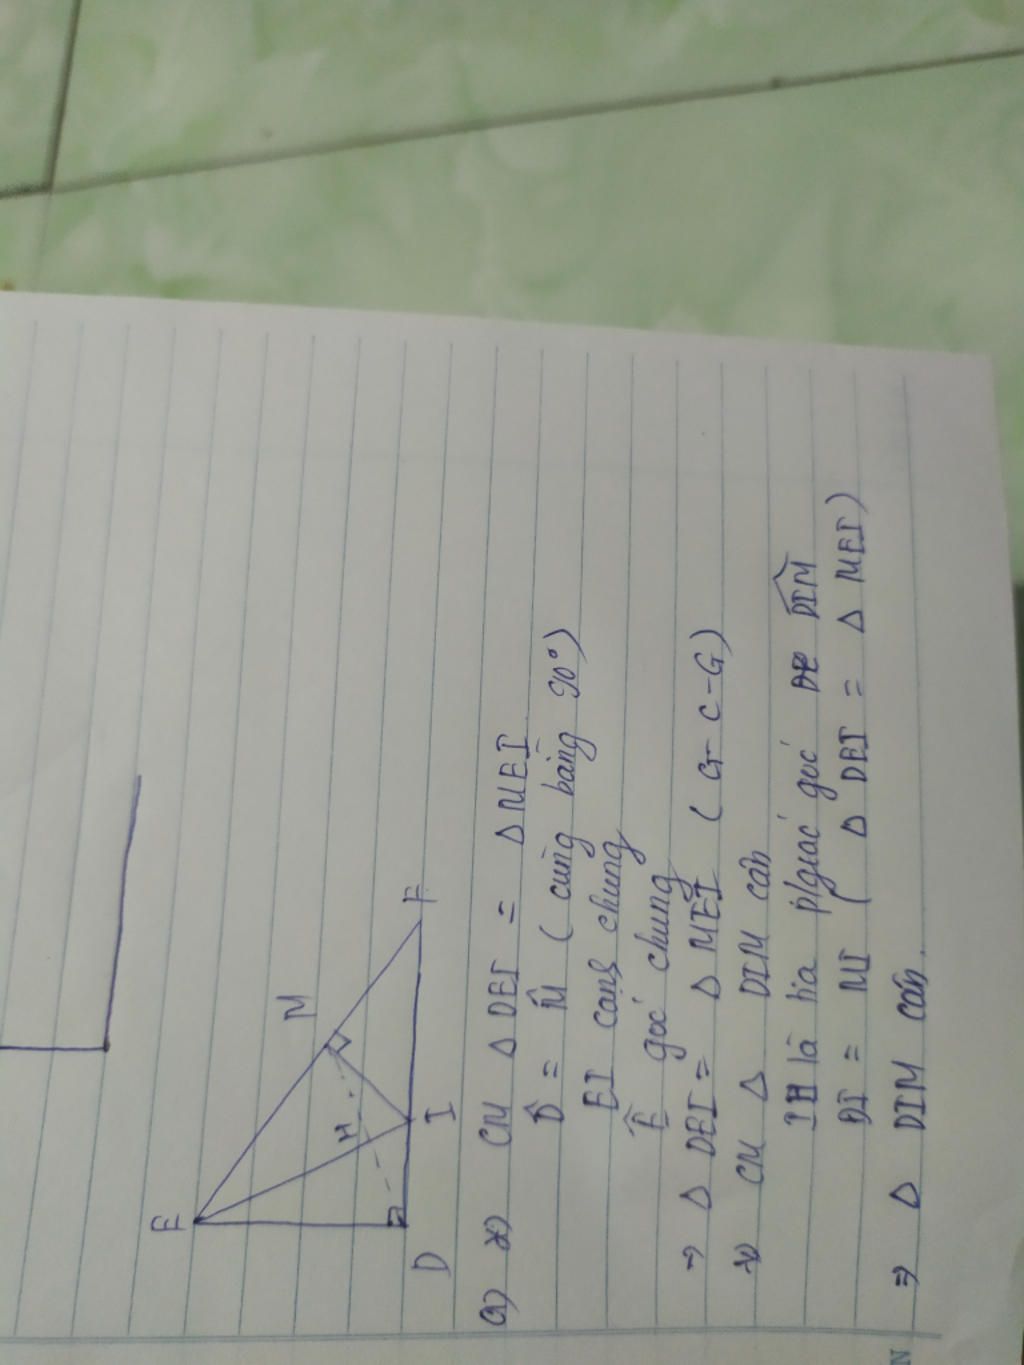 E
M
H
D
I
F
a) *) CM Δ DEI = Δ MEI
D̂ = M̂ ( cùng bằng 90°)
EI cạnh chung
Ê góc chung
→ Δ DEI = Δ MEI ( G - C - G)
*) CM Δ DIM cân
IH là tia p/giác góc DIM
DI = MI ( Δ DEI = Δ MEI)
⇒ Δ DIM cân.
N